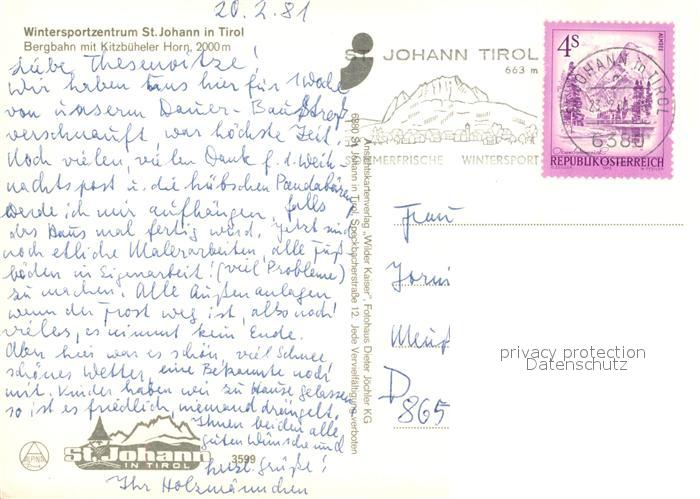 20.2.81
Wintersportzentrum St. Johann in Tirol
Bergbahn mit Kitzbüheler Horn, 2000 m
Liebe
Wir haben uns hier für 1 Woche
von unserm Dauer-Baustreß
verschnauft war höchste Zeit!
Noch vielen, vielen Dank f. 1. Weih-
nachtspost u. die hübschen Pandabären
werde ich mir aufhängen, falls
das Haus mal fertig wird. Jetzt sind
noch etliche Malerarbeiten, alle Fuß-
böden in Eigenarbeit! (viel Probleme)
zu machen. Alle Außenanlagen
wenn der Frost weg ist, also noch
vieles, es nimmt kein Ende.
Aber hier war es schön, viel Schnee
schönes Wetter, eine Bekannte noch
mit. Kinder haben wir zu Hause gelassen
so ist es friedlich, niemand drängelt.
Ihnen beiden alle
guten Wünsche und
herzl. Grüße!
Ihr Holzmännchen
ALPINA
St. Johann
IN TIROL
3599
Ansichtskartenverlag „Wilder Kaiser", Fotohaus Dieter Jöchler KG
6380 St. Johann in Tirol, Speckbacherstraße 12. Jede Vervielfältigung verboten
ST. JOHANN TIROL
663 m
SOMMERFRISCHE WINTERSPORT
4S
ALMSEE
REPUBLIK ÖSTERREICH
ST. JOHANN in TIROL
6380
Frau
D
865
privacy protection
Datenschutz